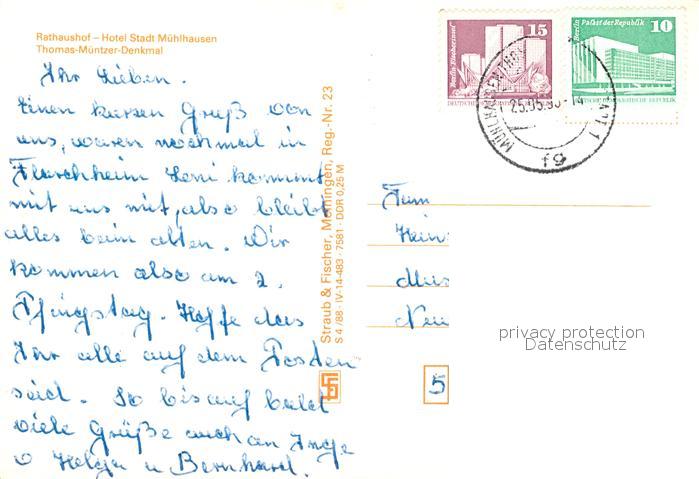 Rathaushof – Hotel Stadt Mühlhausen
Thomas-Müntzer-Denkmal
Ihr Lieben.
Einen kurzen Gruß von
uns, waren nochmal in
Flarchheim Leni kommt
mit uns mit, also bleibt
alles beim alten. Wir
kommen also am 2.
Pfingstag. Hoffe das
Ihr alle auf dem Posten
seid. So bis auf bald
viele Grüße auch an Inge
Helga u Bernhard.
Straub & Fischer, Meiningen, Reg.-Nr. 23
S 4/88 · IV-14-483 · 7581 · DDR 0,25 M
Berlin-Fischerinsel
15
Berlin, Palast der Republik
10
DEUTSCHE DEMOKRATISCHE REPUBLIK
MÜHLHAUSEN
1
fg
Fam
Hein
Neu
5
privacy protection
Datenschutz